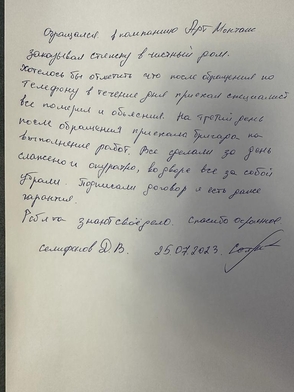 Обращался в компанию Арт Монтаж
заказывал стяжку в частный дом.
Хотелось бы отметить что после обращения по
телефону в течение дня приехал специалист
все померил и объяснил. На третий день
после обращения приехала бригада на
выполнение работ. Все сделали за день
слаженно и аккуратно, во дворе все за собой
убрали. Подписали договор и есть даже
гарантия.
Ребята знают своё дело. Спасибо огромное
Селифанов Д.В. 25.07.2023